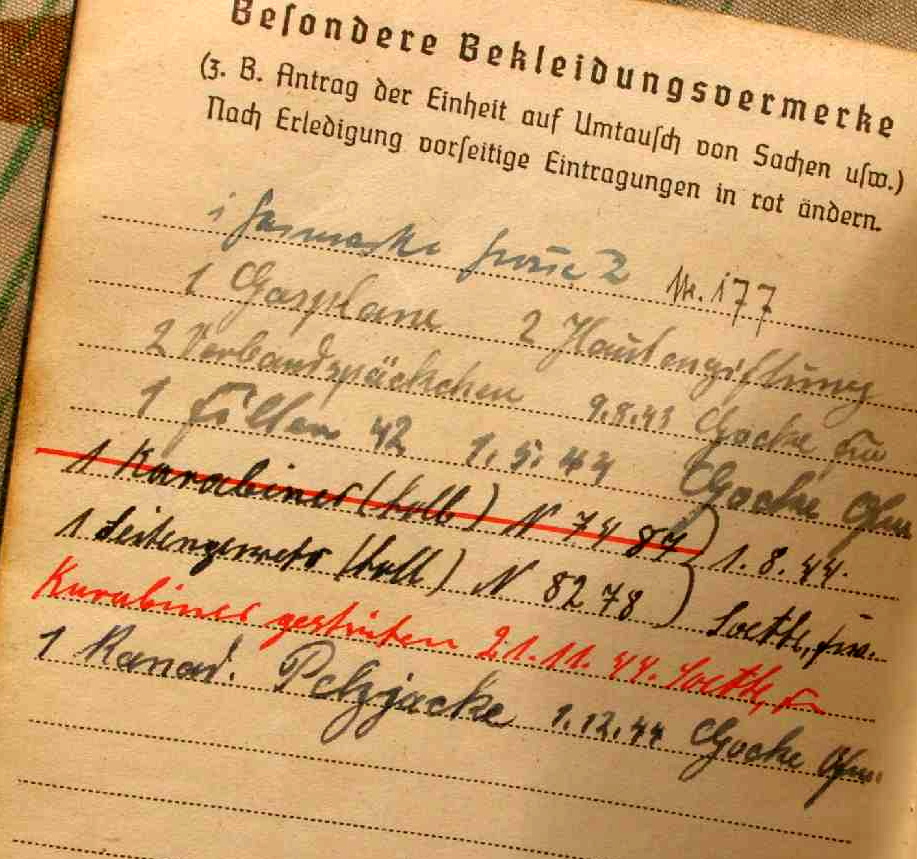 Besondere Bekleidungsvermerke
(z. B. Antrag der Einheit auf Umtausch von Sachen usw.)
Nach Erledigung vorseitige Eintragungen in rot ändern.
1 Gasmaske Grösse 2 Nr. 177
1 Gasplane 2 Hautengiftung
2 Verbandspäckchen 9.8.43 Gocke
1 42 1.5.44 Gocke
1 Karabiner (holl) N 7484 1.8.44.
1 Seitengewehr (holl) N 8278
Karabiner gestrichen 21.11.44.
1 Kanad. Pelzjacke 1.12.44 Gocke